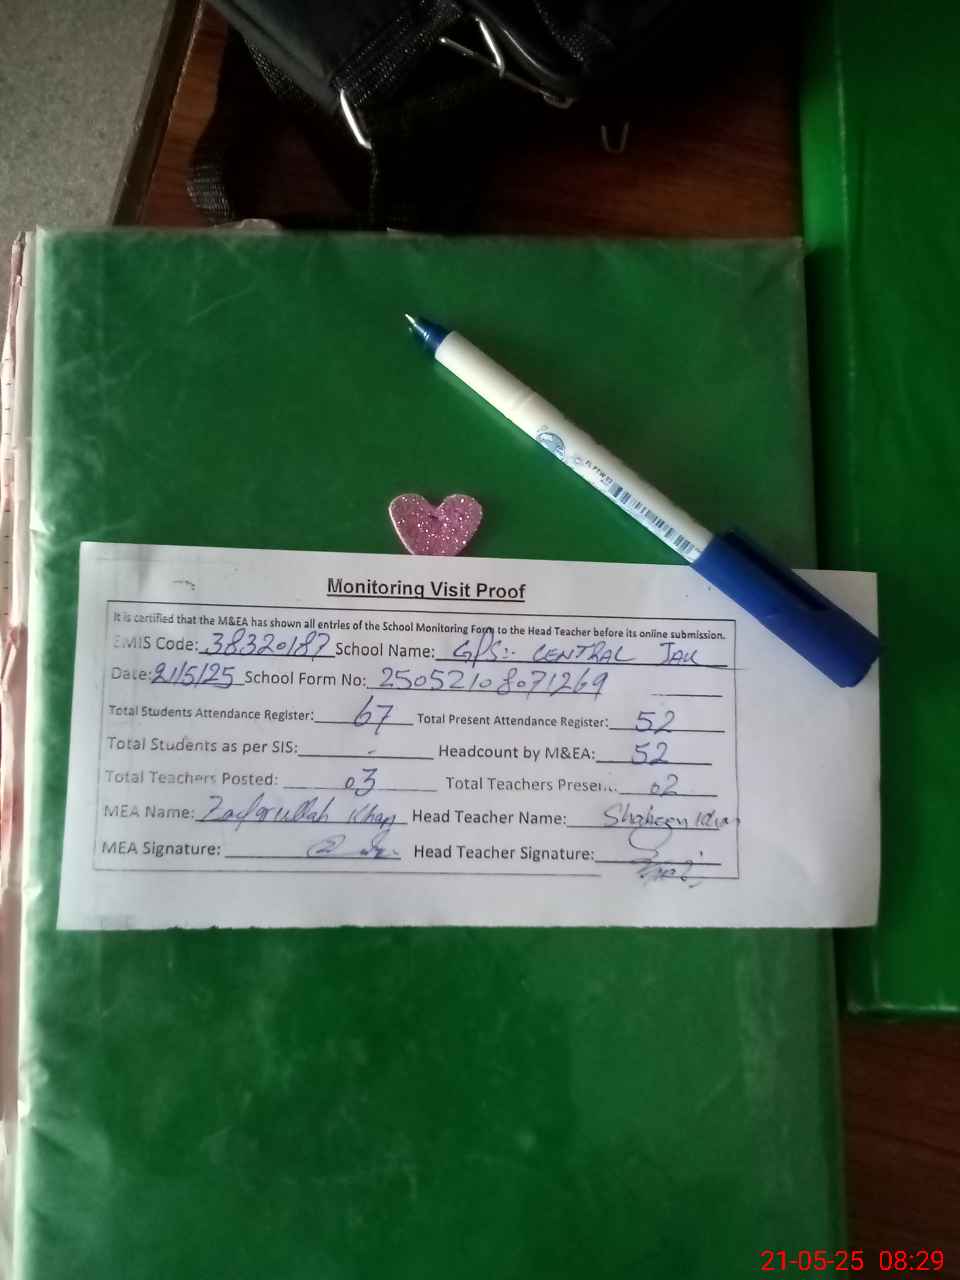 Monitoring Visit Proof
It is certified that the M&EA has shown all entries of the School Monitoring Form to the Head Teacher before its online submission.
EMIS Code: 38320187 School Name: GPS:- CENTRAL JAIL
Date: 21/5/25 School Form No: 25052108071269
Total Students Attendance Register: 67 Total Present Attendance Register: 52
Total Students as per SIS: - Headcount by M&EA: 52
Total Teachers Posted: 03 Total Teachers Present: 02
MEA Name: Zafarullah Khan Head Teacher Name: Shaheen
MEA Signature: Head Teacher Signature:
21-05-25 08:29